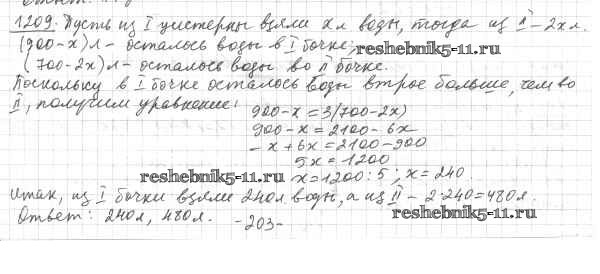 1209. Пусть из I цистерны взяли x л воды, тогда из II – 2x л.
(900-x)л – осталось воды в I бочке; reshebnik5-11.ru
(700-2x)л – осталось воды во II бочке.
Поскольку в I бочке осталось воды втрое больше, чем во
II, получим уравнение:
900-x=3(700-2x)
900-x=2100-6x
-x+6x=2100-900
5x=1200
reshebnik5-11.ru x=1200:5; x=240.
Итак, из I бочки взяли 240л воды, а из II – 2·240=480л.
Ответ: 240л, 480л. -203- reshebnik5-11.ru